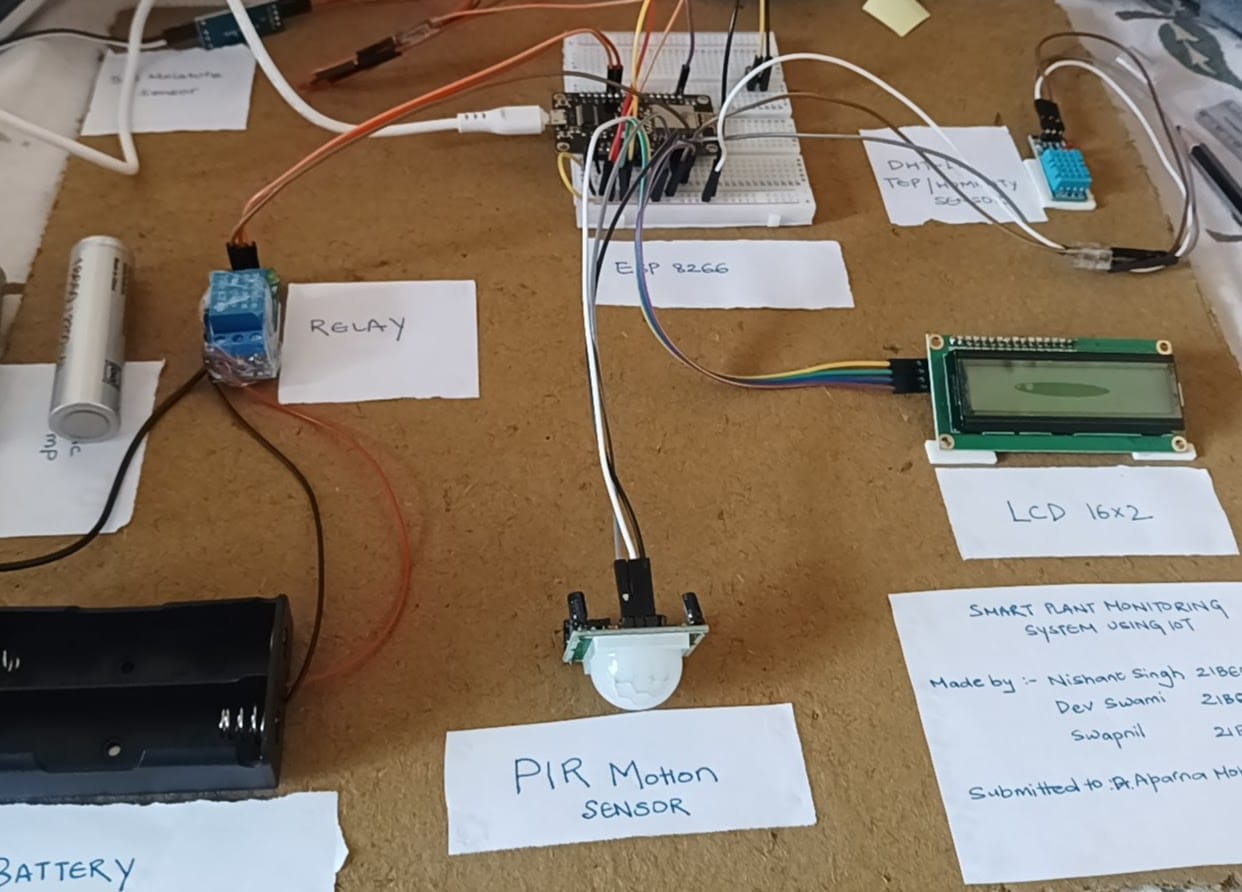 Moisture
Sensor
DHT
TEP/HUMIDITY
SENSOR
ESP 8266
RELAY
mp
LCD 16x2
SMART PLANT MONITORING
SYSTEM USING IOT
Made by :- Nishant Singh 21BE
Dev Swami 21B
Swapnil 21
Submitted to :Dr. Aparna
PIR Motion
SENSOR
BATTERY